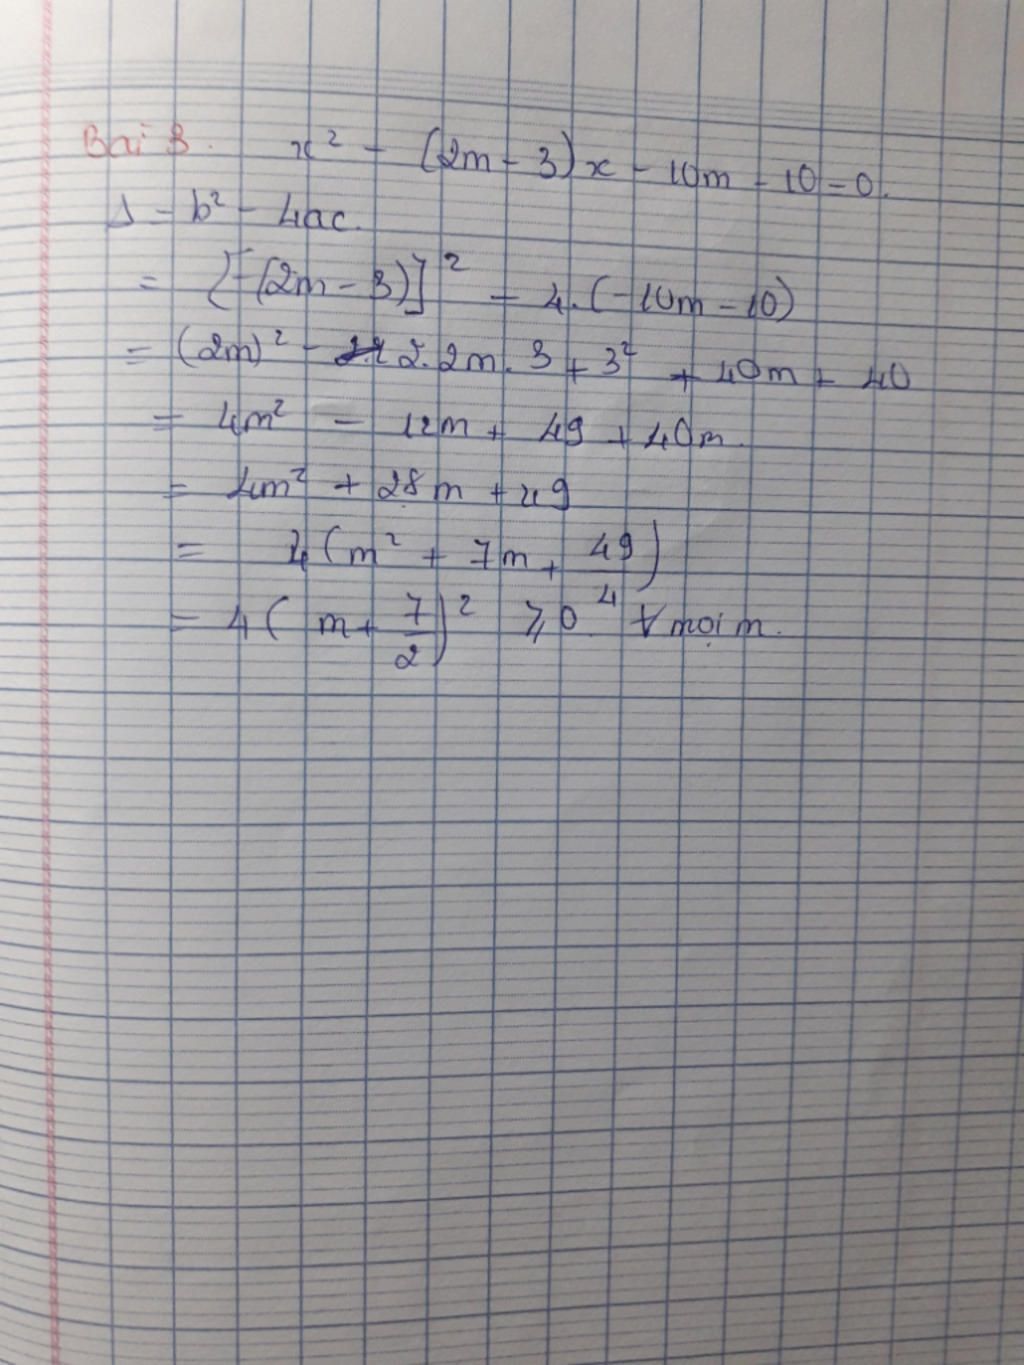 Bài 3. x² - (2m - 3)x - 10m - 10 = 0.
Δ = b² - 4ac.
= [-(2m - 3)]² - 4.(-10m - 10)
= (2m)² - 2.2m.3 + 3² + 40m + 40
= 4m² - 12m + 49 + 40m.
= 4m² + 28m + 49
= 4(m² + 7m + 49/4)
= 4(m + 7/2)² ⩾ 0 ∀ mọi m.